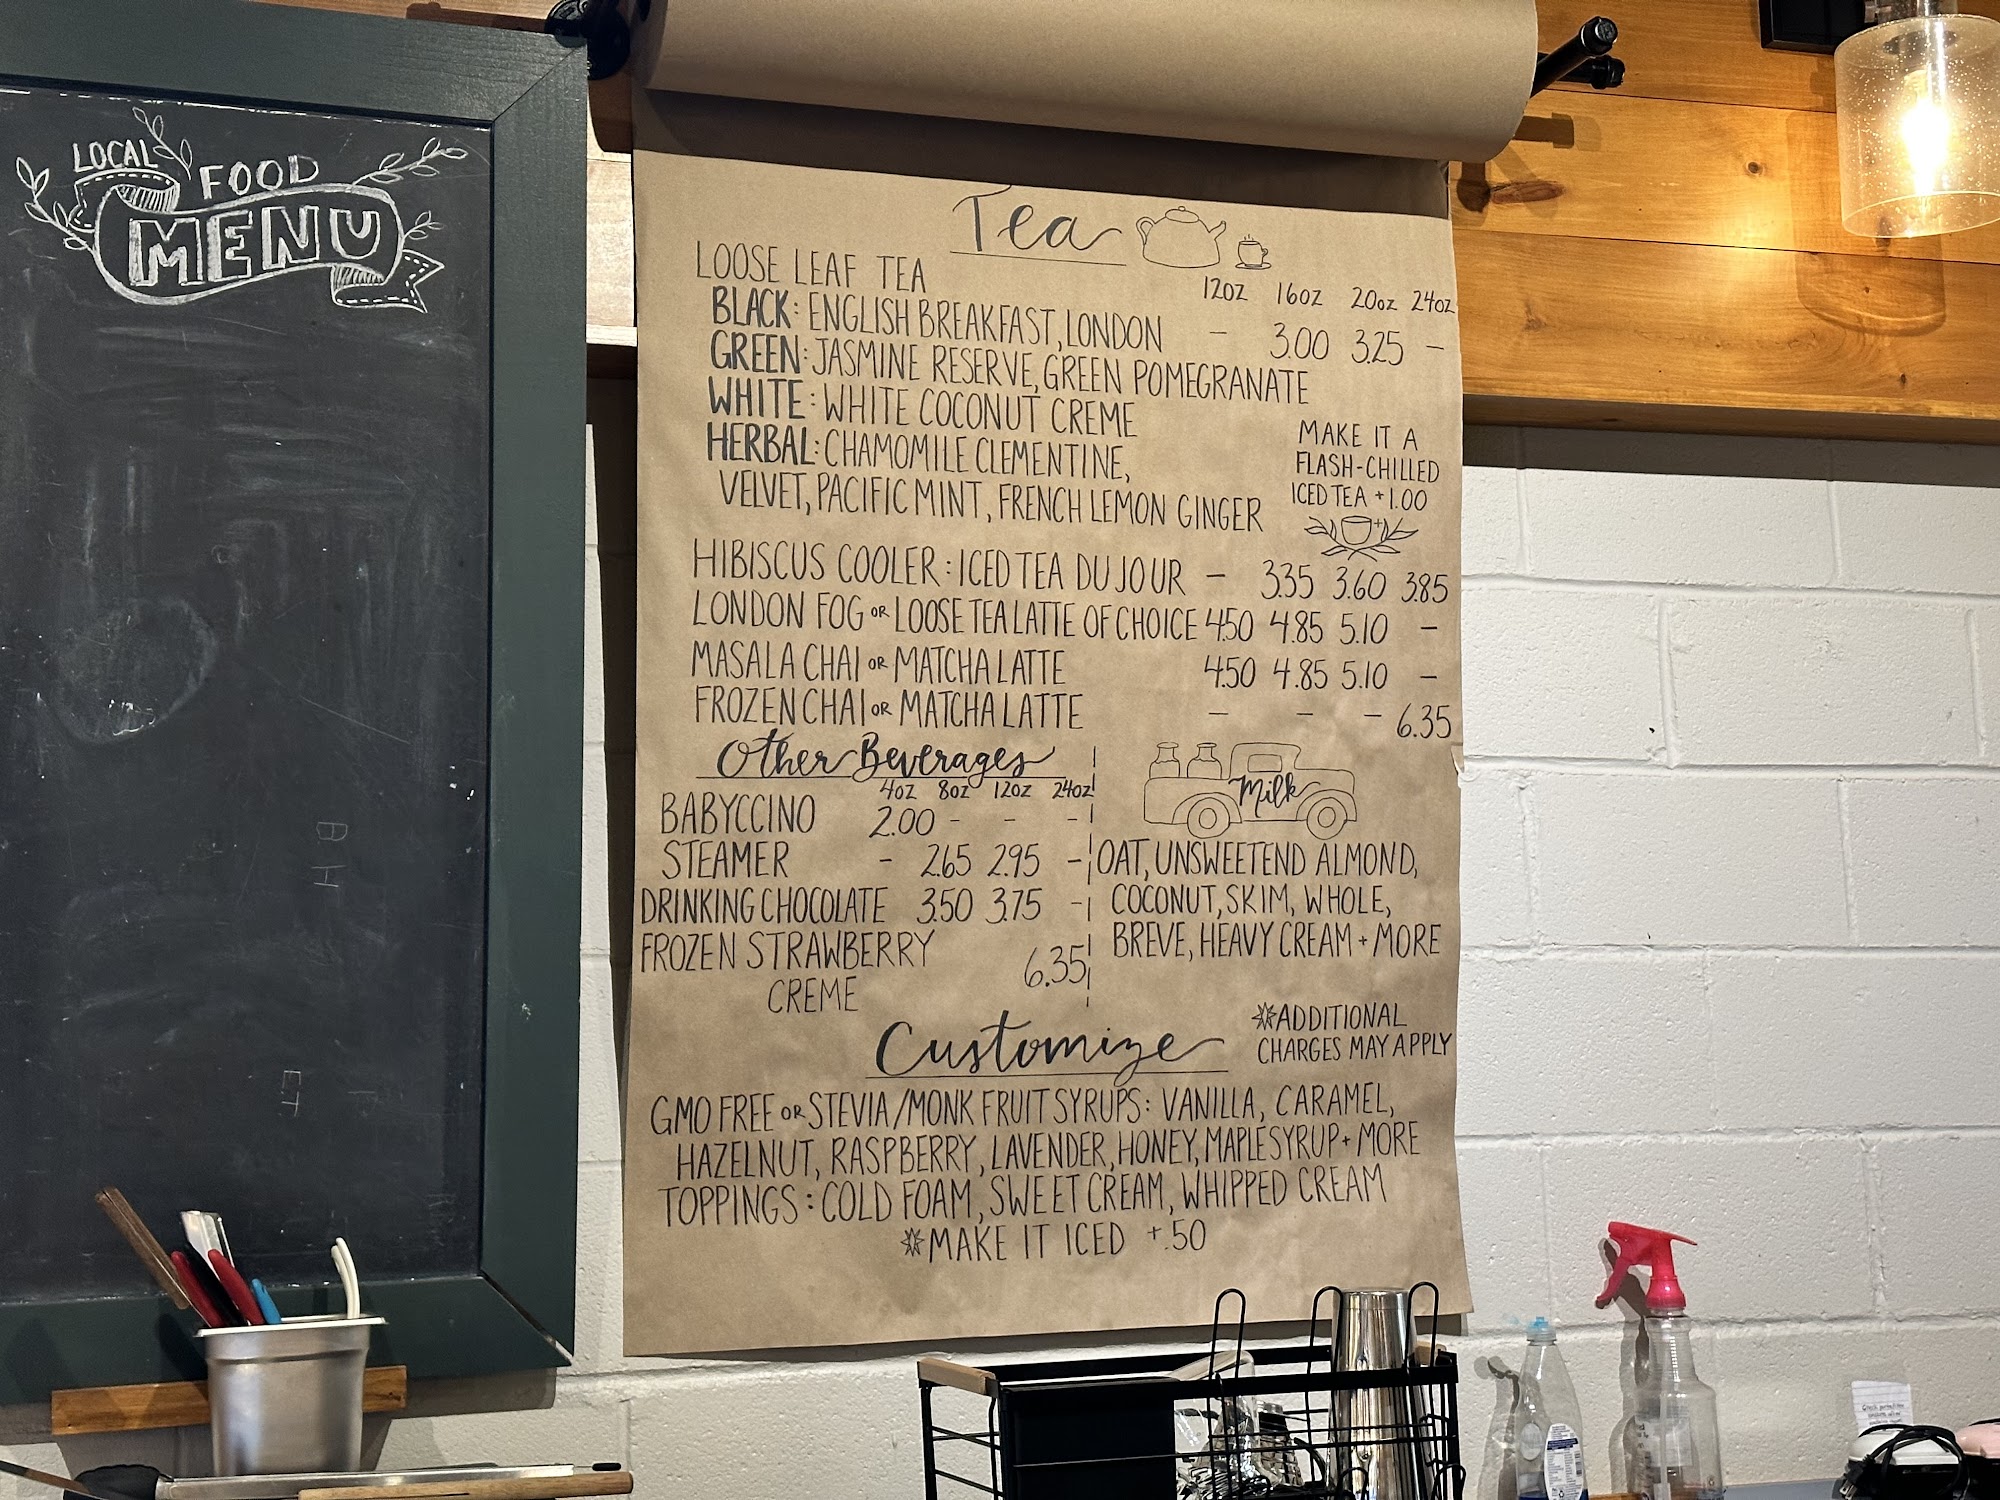 LOCAL
FOOD
MENU
Tea
LOOSE LEAF TEA
12oz 16oz 20oz 24oz
BLACK: ENGLISH BREAKFAST, LONDON - 3.00 3.25 -
GREEN: JASMINE RESERVE, GREEN POMEGRANATE
WHITE: WHITE COCONUT CREME
HERBAL: CHAMOMILE CLEMENTINE,
VELVET, PACIFIC MINT, FRENCH LEMON GINGER
MAKE IT A
FLASH-CHILLED
ICED TEA +1.00
HIBISCUS COOLER: ICED TEA DU JOUR - 3.35 3.60 3.85
LONDON FOG OR LOOSE TEA LATTE OF CHOICE 4.50 4.85 5.10 -
MASALA CHAI OR MATCHA LATTE 4.50 4.85 5.10 -
FROZEN CHAI OR MATCHA LATTE - - - 6.35
Other Beverages
4oz 8oz 12oz 24oz
BABYCCINO 2.00 - - -
STEAMER - 2.65 2.95 -
DRINKING CHOCOLATE 3.50 3.75 -
FROZEN STRAWBERRY
CREME 6.35
Milk
OAT, UNSWEETEND ALMOND,
COCONUT, SKIM, WHOLE,
BREVE, HEAVY CREAM + MORE
Customize
*ADDITIONAL
CHARGES MAY APPLY
GMO FREE OR STEVIA/MONK FRUIT SYRUPS: VANILLA, CARAMEL,
HAZELNUT, RASPBERRY, LAVENDER, HONEY, MAPLE SYRUP + MORE
TOPPINGS: COLD FOAM, SWEET CREAM, WHIPPED CREAM
*MAKE IT ICED +.50